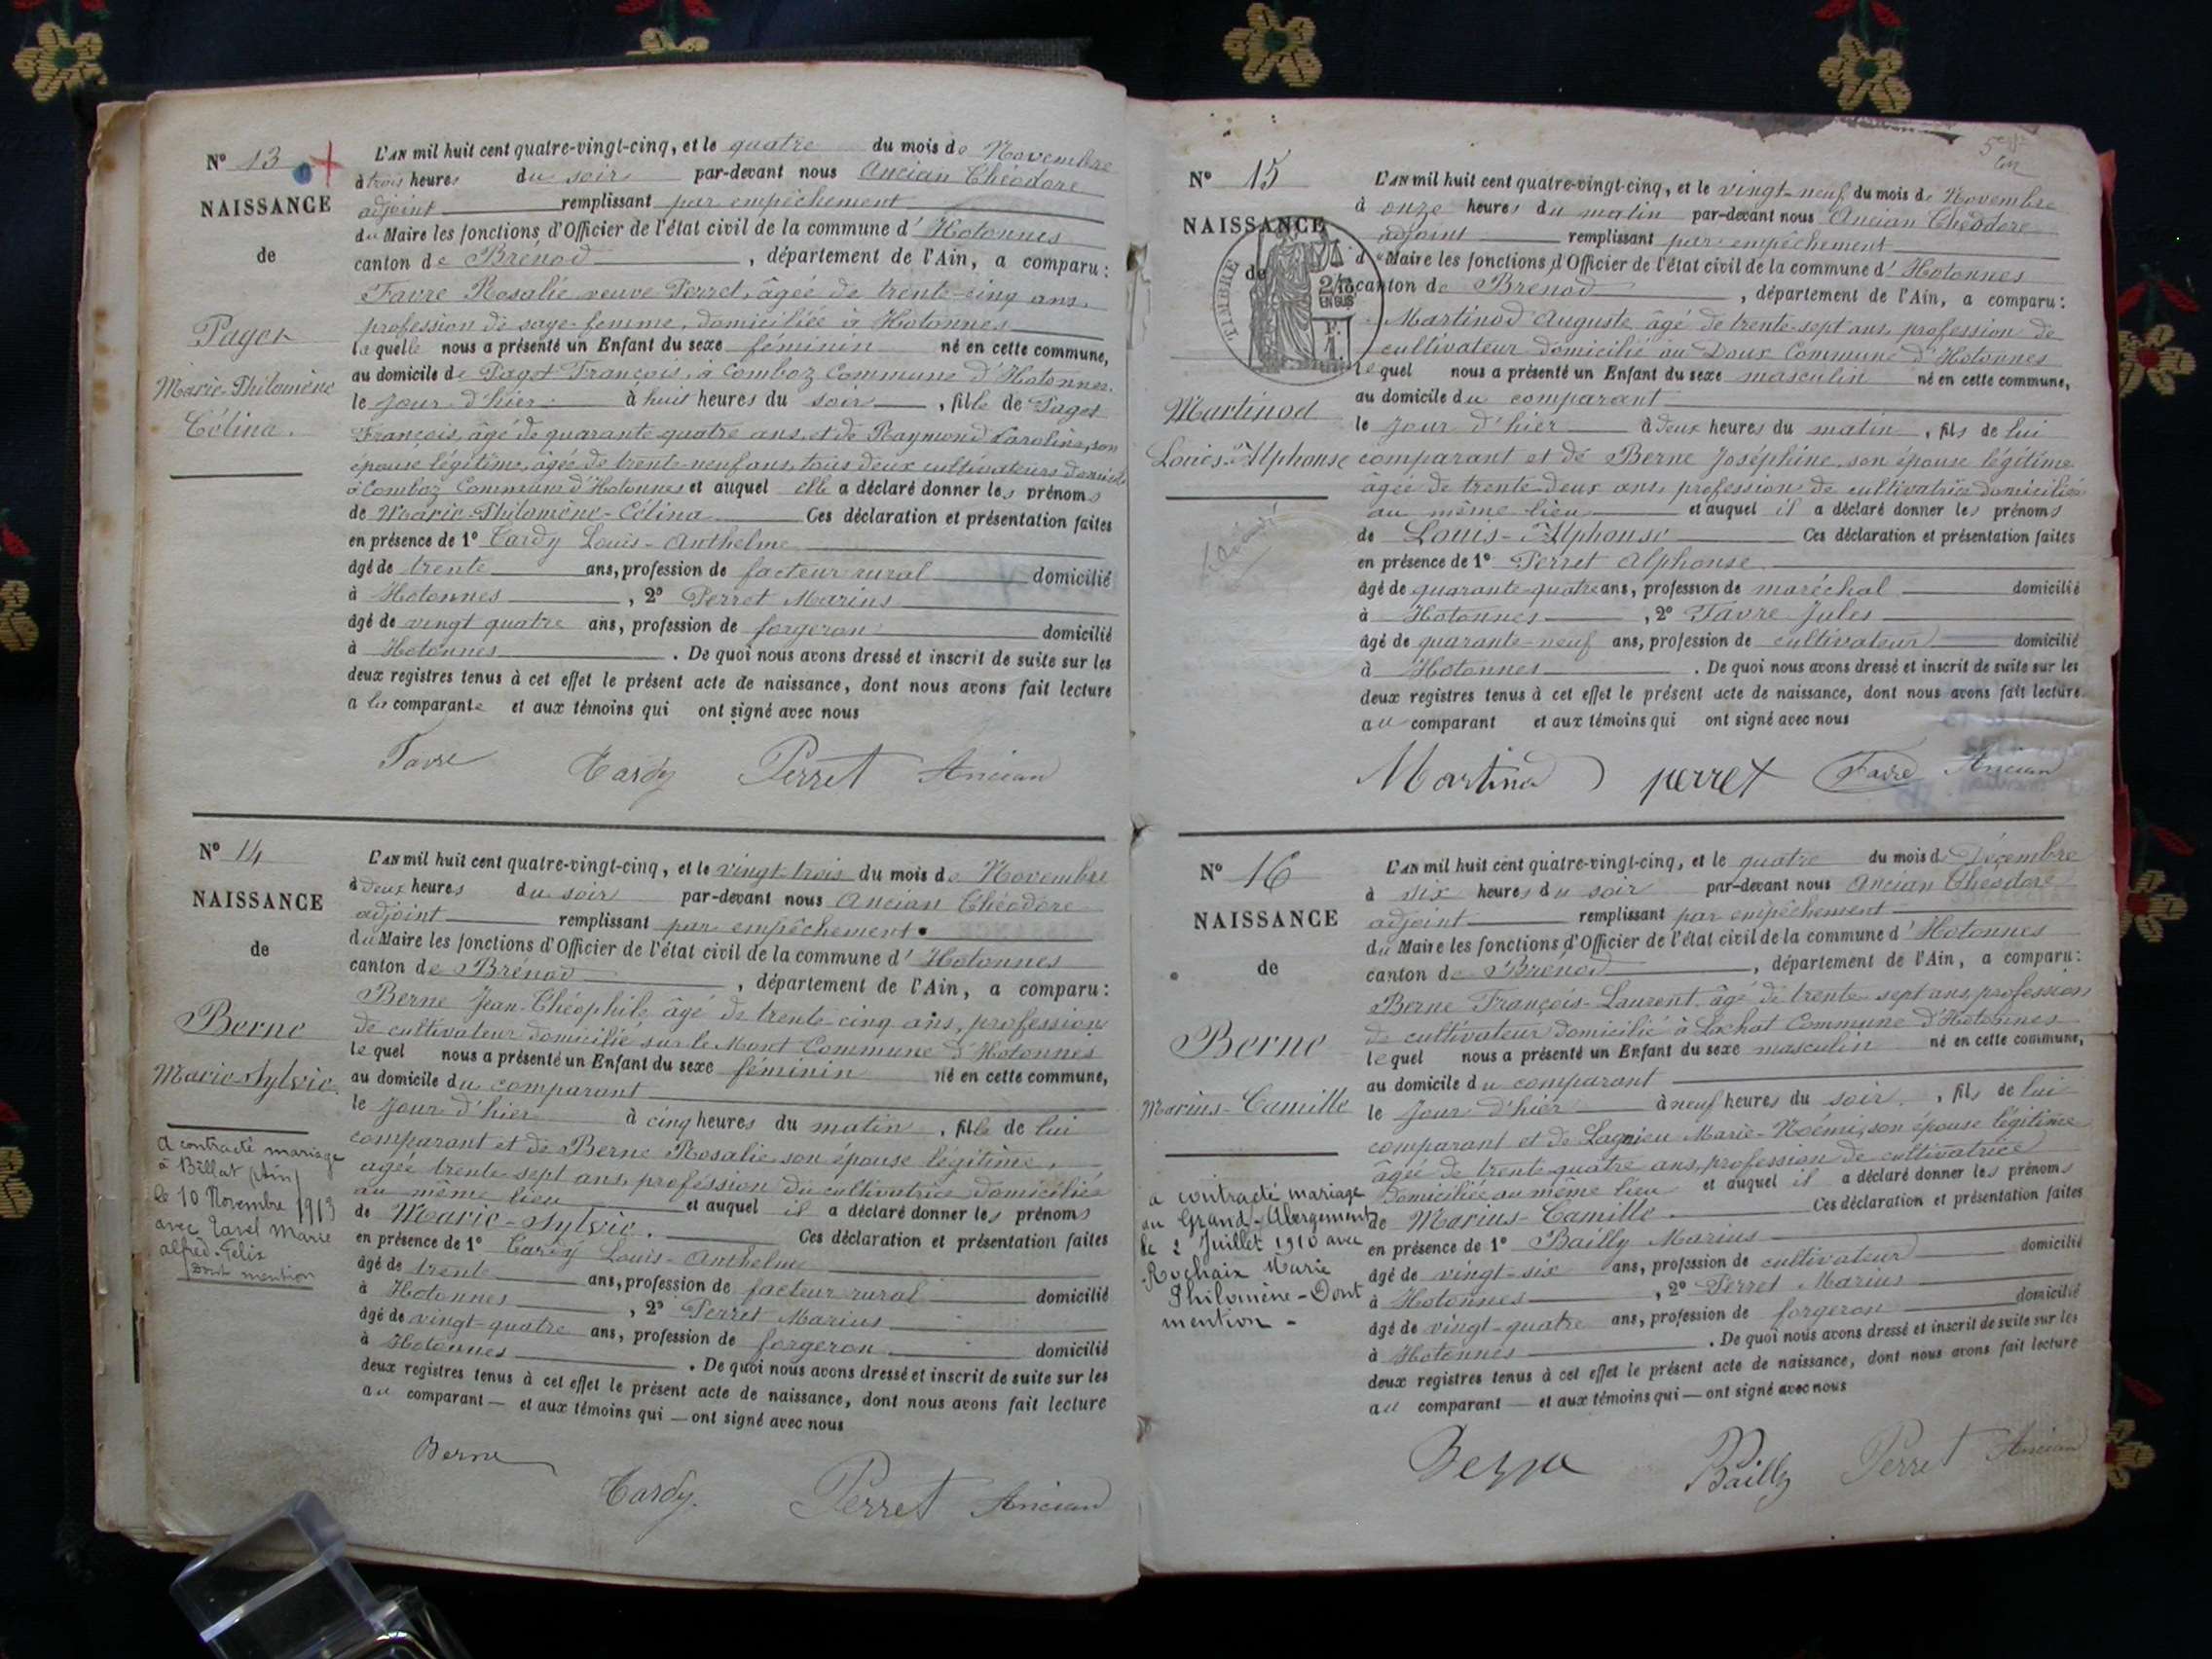 N° 13
NAISSANCE
de
Paget
Marie-Philomène
Célina.
L'AN mil huit cent quatre-vingt-cinq, et le quatre du mois de Novembre
à trois heures du soir par-devant nous Ancian Théodore
adjoint remplissant par empêchement
du Maire les fonctions d'Officier de l'état civil de la commune d'Hotonnes
canton de Brénod, département de l'Ain, a comparu:
Favre Rosalie veuve Perret, âgée de trente-cinq ans,
profession de sage-femme, domiciliée à Hotonnes
laquelle nous a présenté un Enfant du sexe féminin né en cette commune,
au domicile de Paget François, à Comboz Commune d'Hotonnes
le jour d'hier à huit heures du soir, fille de Paget
François, âgé de quarante-quatre ans, et de Raymond Caroline, son
épouse légitime, âgée de trente-neuf ans, tous deux cultivateurs domiciliés
à Comboz Commune d'Hotonnes et auquel elle a déclaré donner les prénoms
de Marie-Philomène-Célina Ces déclaration et présentation faites
en présence de 1° Tardy Louis-Anthelme
âgé de trente ans, profession de facteur rural domicilié
à Hotonnes, 2° Perret Marius
âgé de vingt quatre ans, profession de forgeron domicilié
à Hotonnes. De quoi nous avons dressé et inscrit de suite sur les
deux registres tenus à cet effet le présent acte de naissance, dont nous avons fait lecture
a la comparante et aux témoins qui ont signé avec nous
Favre Tardy Perret Ancian
N° 14
NAISSANCE
de
Berne
Marie-Sylvie.
a contracté mariage
à Billat (Ain)
le 10 Novembre 1913
avec Tavel Marie
alfred-Félix
Dont mention
L'AN mil huit cent quatre-vingt-cinq, et le vingt-trois du mois de Novembre
à deux heures du soir par-devant nous Ancian Théodore
adjoint remplissant par empêchement
du Maire les fonctions d'Officier de l'état civil de la commune d'Hotonnes
canton de Brénod, département de l'Ain, a comparu:
Berne Jean-Théophile âgé de trente cinq ans, profession
de cultivateur domicilié sur le Mont Commune d'Hotonnes
lequel nous a présenté un Enfant du sexe féminin né en cette commune,
au domicile du comparant
le jour d'hier à cinq heures du matin, fille de lui
comparant et de Berne Rosalie son épouse légitime,
agée trente sept ans, profession de cultivatrice domiciliée
au même lieu et auquel il a déclaré donner les prénoms
de Marie-Sylvie. Ces déclaration et présentation faites
en présence de 1° Tardy Louis-Anthelme
âgé de trente ans, profession de facteur rural domicilié
à Hotonnes, 2° Perret Marius
âgé de vingt-quatre ans, profession de forgeron domicilié
à Hotonnes. De quoi nous avons dressé et inscrit de suite sur les
deux registres tenus à cet effet le présent acte de naissance, dont nous avons fait lecture
au comparant — et aux témoins qui — ont signé avec nous
Berne
Tardy. Perret Ancian
N° 15
NAISSANCE
de
TIMBRE
2/10
EN SUS
Martinod
Louis-Alphonse
L'AN mil huit cent quatre-vingt-cinq, et le vingt-neuf du mois de Novembre
à onze heures du matin par-devant nous Ancian Théodore
adjoint remplissant par empêchement
du Maire les fonctions d'Officier de l'état civil de la commune d'Hotonnes
canton de Brénod, département de l'Ain, a comparu:
Martinod Auguste, âgé de trente-sept ans, profession de
cultivateur domicilié au Doux Commune d'Hotonnes
lequel nous a présenté un Enfant du sexe masculin né en cette commune,
au domicile du comparant
le jour d'hier à deux heures du matin, fils de lui
comparant et de Berne Joséphine, son épouse légitime
âgée de trente-deux ans, profession de cultivatrice domiciliée
au même lieu et auquel il a déclaré donner les prénoms
de Louis-Alphonse Ces déclaration et présentation faites
en présence de 1° Perret Alphonse
âgé de quarante-quatre ans, profession de maréchal domicilié
à Hotonnes, 2° Favre Jules
âgé de quarante-neuf ans, profession de cultivateur domicilié
à Hotonnes. De quoi nous avons dressé et inscrit de suite sur les
deux registres tenus à cet effet le présent acte de naissance, dont nous avons fait lecture
au comparant et aux témoins qui ont signé avec nous
Martinod perret Favre Ancian
N° 16
NAISSANCE
de
Berne
Marius-Camille
a contracté mariage
au Grand-Abergement
le 2 Juillet 1910 avec
Rochaix Marie
Philomène-Dont
mention -
L'AN mil huit cent quatre-vingt-cinq, et le quatre du mois de Décembre
à six heures du soir par-devant nous Ancian Théodore
adjoint remplissant par empêchement
du Maire les fonctions d'Officier de l'état civil de la commune d'Hotonnes
canton de Brénod, département de l'Ain, a comparu:
Berne François-Laurent âgé de trente sept ans, profession
de cultivateur domicilié à Lachat Commune d'Hotonnes
lequel nous a présenté un Enfant du sexe masculin né en cette commune,
au domicile du comparant
le jour d'hier à neuf heures du soir, fils de lui
comparant et de Lagnieu Marie-Noémie, son épouse légitime
âgée de trente quatre ans, profession de cultivatrice
domiciliée au même lieu et auquel il a déclaré donner les prénoms
de Marius-Camille. Ces déclaration et présentation faites
en présence de 1° Bailly Marius
âgé de vingt-six ans, profession de cultivateur domicilié
à Hotonnes, 2° Perret Marius
âgé de vingt-quatre ans, profession de forgeron domicilié
à Hotonnes. De quoi nous avons dressé et inscrit de suite sur les
deux registres tenus à cet effet le présent acte de naissance, dont nous avons fait lecture
au comparant — et aux témoins qui — ont signé avec nous
Berne Bailly Perret Ancian